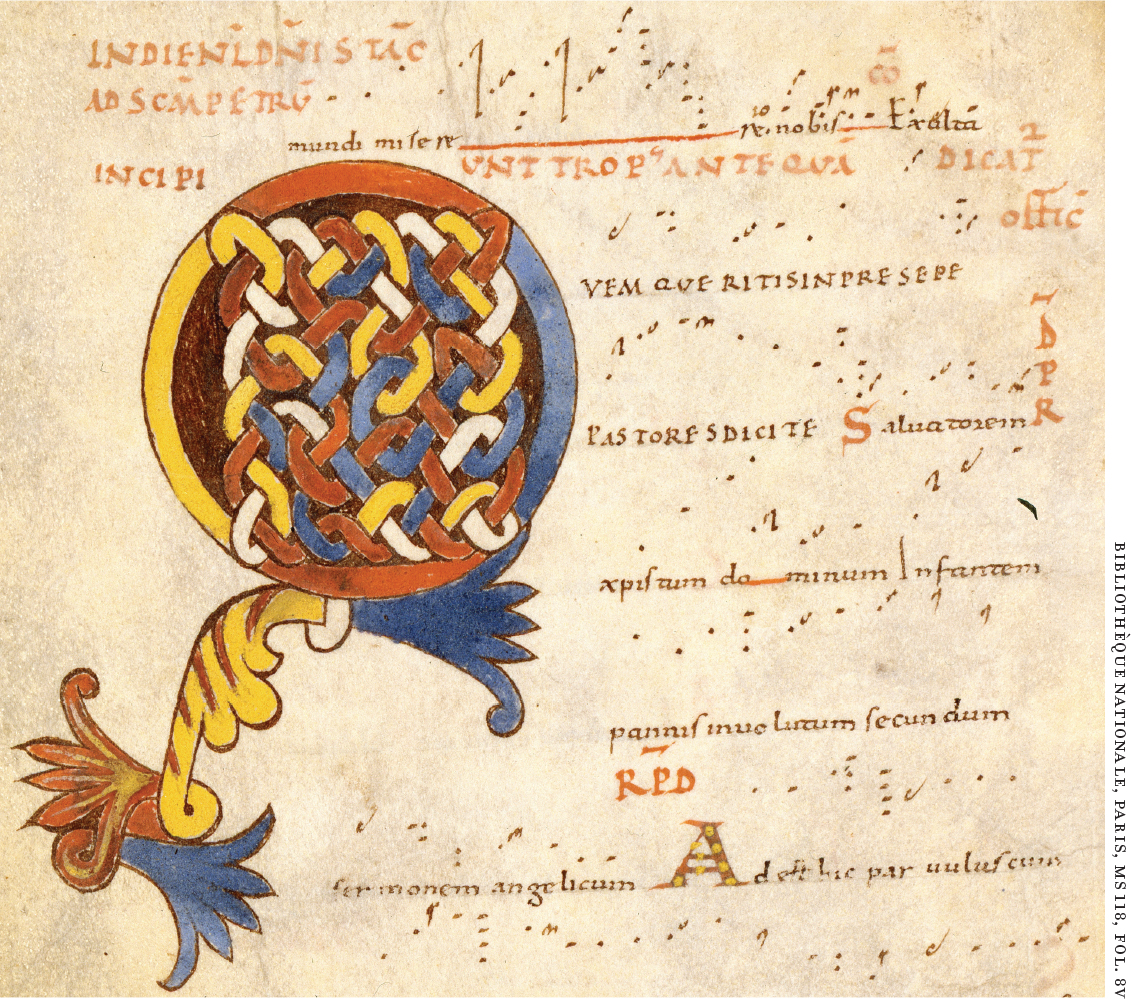 INDIEN̄L̄DN̄I STĀC
AD SCM̄PETRŪ
cō
mundi misere re nobis Exalta
INCIPI UNT TROP ANTEQUĀ DICAT̄
offic̄
QVEM QVERITISINPRESEPE
PASTORESDICITE Salvatorem
D̄
P
R
xpistum do minum Infantem
pannisinvolutum secundum
RP̄D
sermonem angelicum Adest hic parvulus cum
BIBLIOTHÈQUE NATIONALE, PARIS, MS 118, FOL. 8V